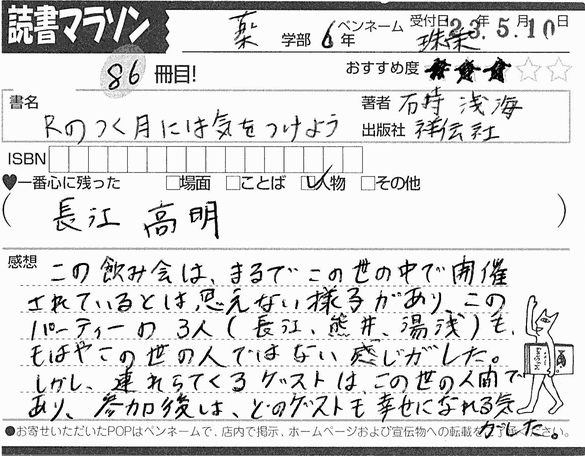 読書マラソン
薬 学部 6年 ペンネーム 珠栄 受付日23年5月10日
86 冊目! おすすめ度 ★★★☆☆
書名 Rのつく月には気をつけよう
著者 石持 浅海
出版社 祥伝社
ISBN
♥一番心に残った □場面 □ことば ☑人物 □その他
( 長江 高明 )
感想 この飲み会は、まるでこの世の中で開催
されているとは思えない様子があり、この
パーティーの3人(長江、熊井、湯浅)も、
もはやこの世の人ではない感じがした。
しかし、連れらてくるゲストは、この世の人間で
あり、参加後は、どのゲストも幸せになれる気
がした。
●お寄せいただいたPOPはペンネームで、店内で掲示、ホームページおよび宣伝物への転載をご了承ください。